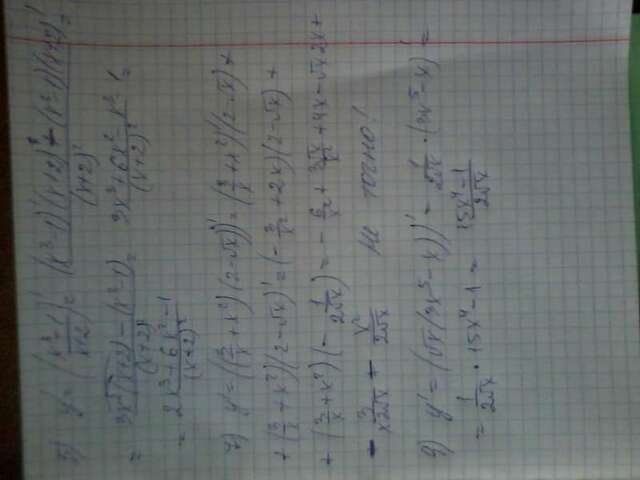 5) y' = ((x³-1)/(x+2))' = ((x³-1)'(x+2) - (x³-1)(x+2)')/(x+2)² =
= (3x²(x+2) - (x³-1))/(x+2)² = (3x³+6x²-x³-1)/(x+2)² =
= (2x³+6x²-1)/(x+2)²
7) y' = ((3/x + x²)(2-√x))' = (3/x + x²)'(2-√x) +
+ (3/x + x²)(2-√x)' = (-3/x² + 2x)(2-√x) +
+ (3/x + x²)(-1/(2√x)) = -6/x² + 3√x/x² + 4x - √x 2x +
- 3/(x2√x) - x²/(2√x) Не точно!
9) y' = (√x(3x⁵-x))' = 1/(2√x) · (3x⁵-x)' =
= 1/(2√x) · 15x⁴-1 = (15x⁴-1)/(2√x)